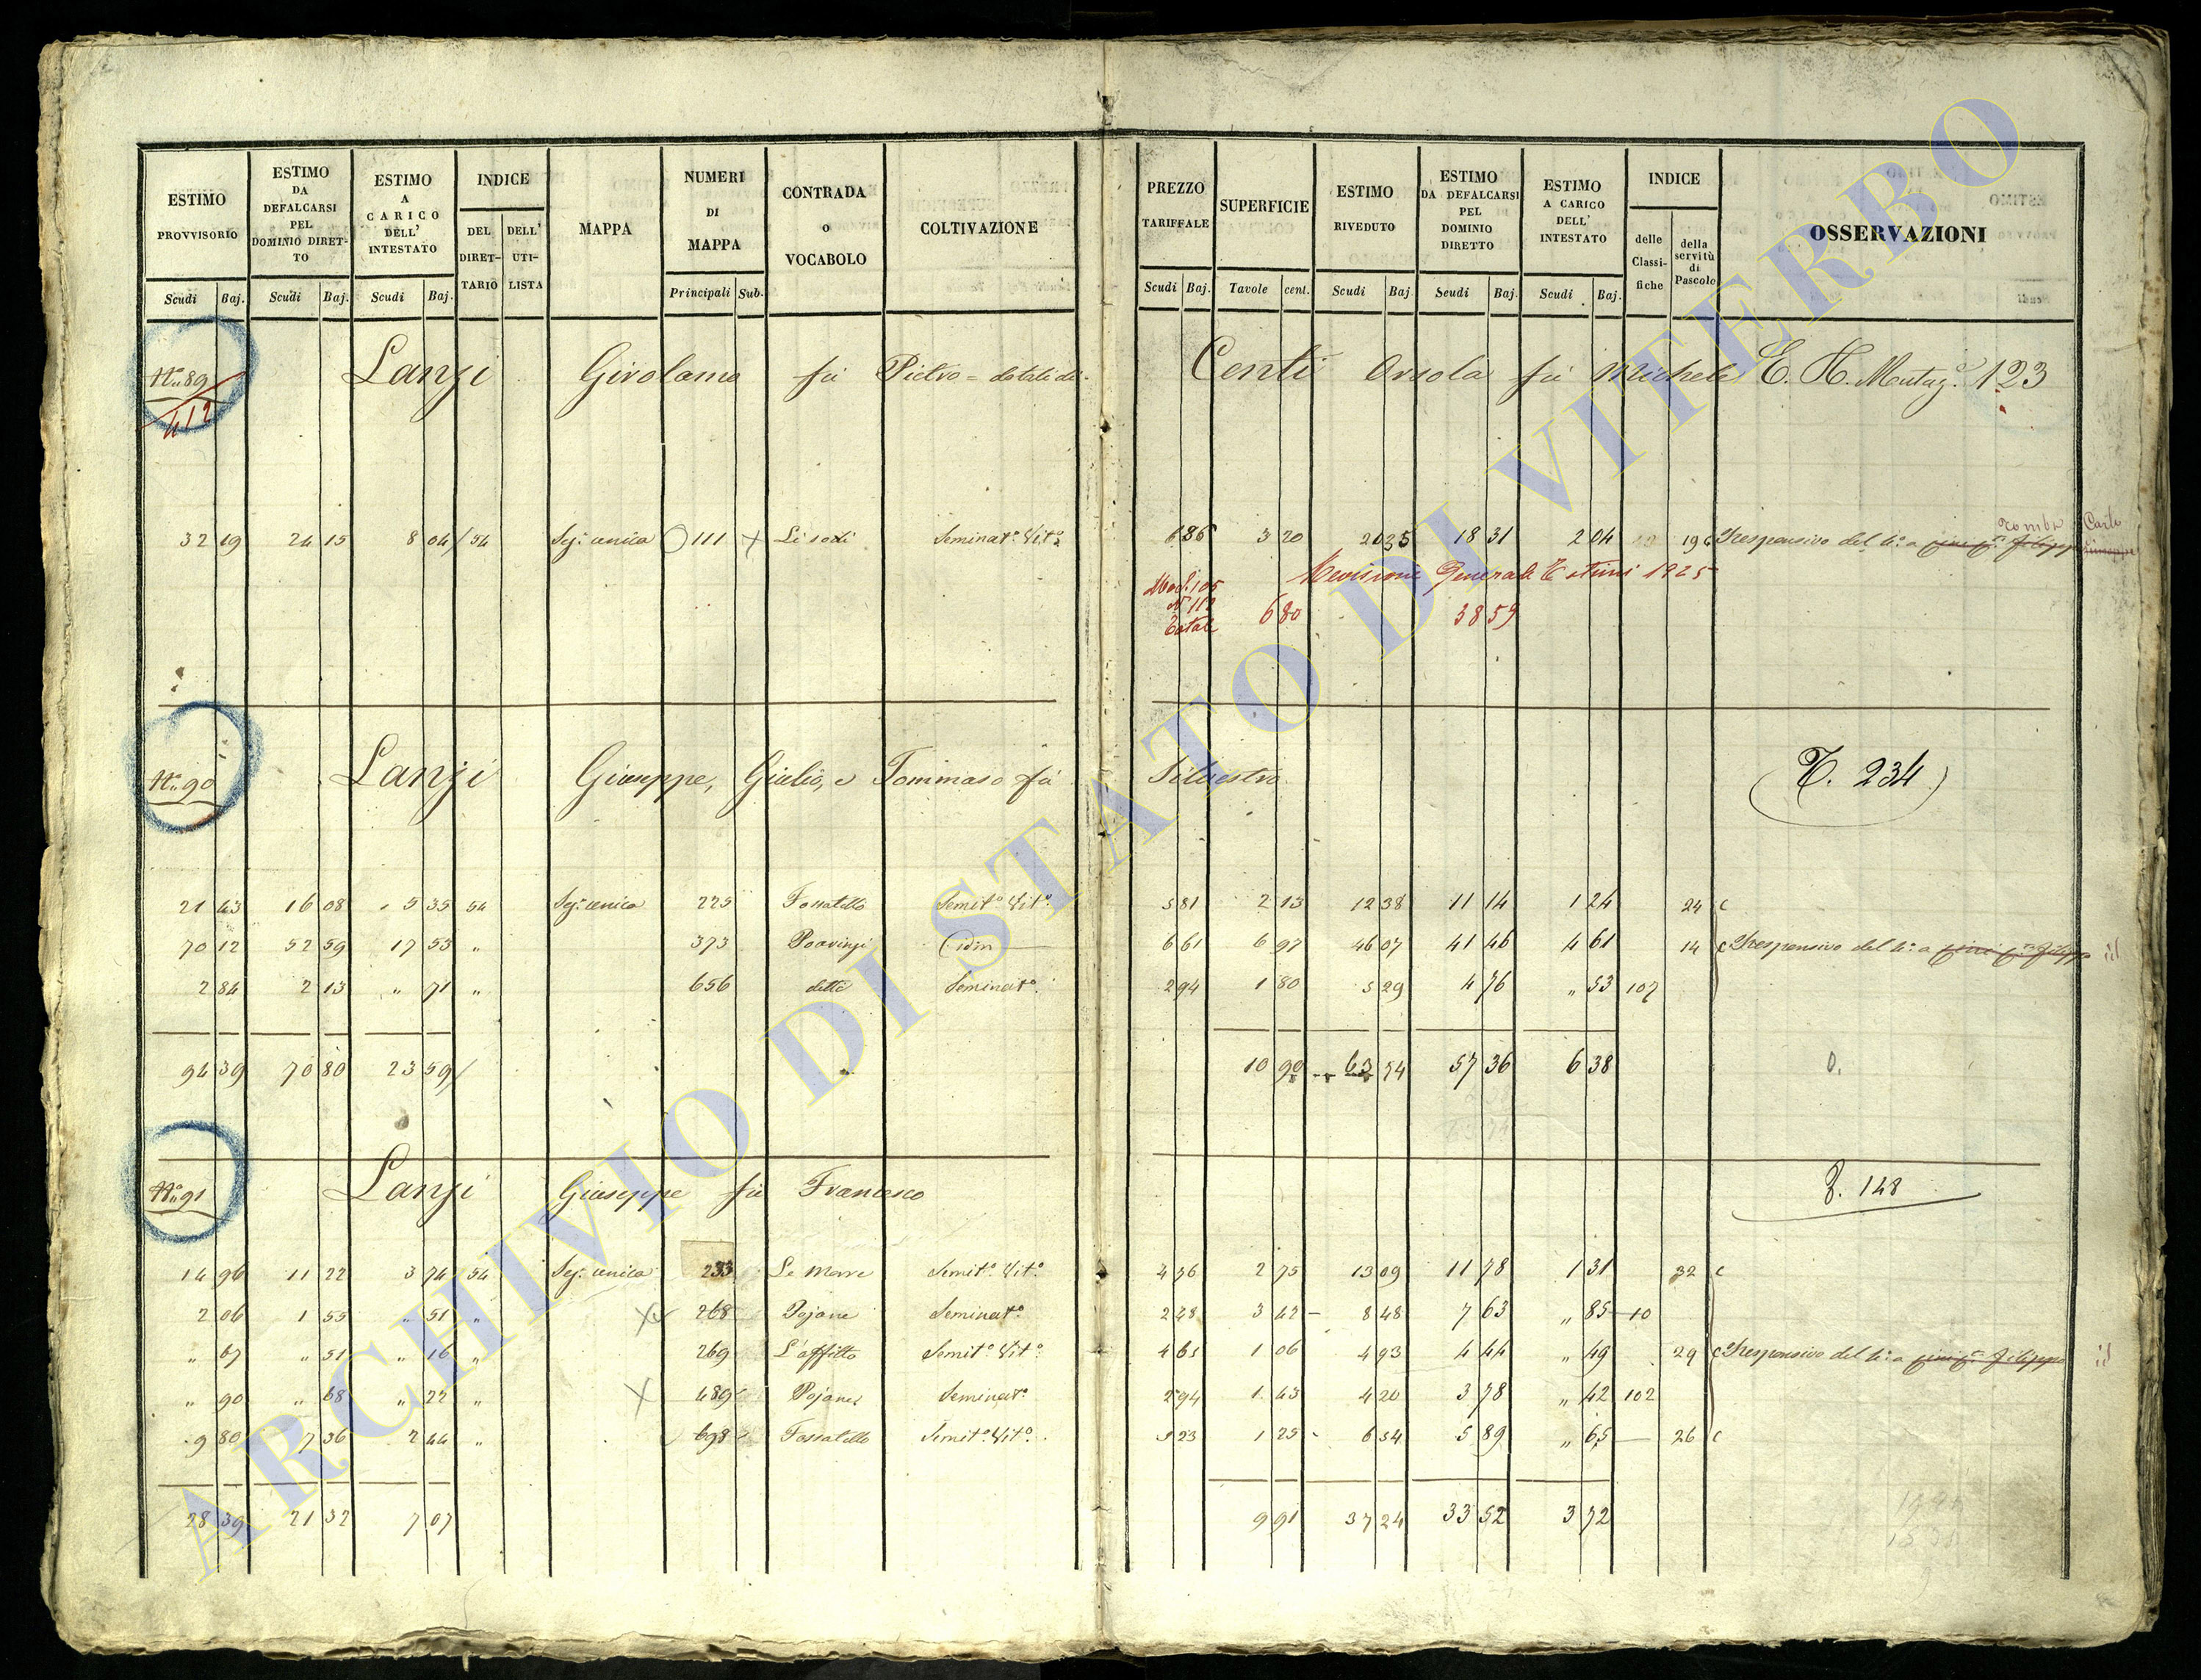 ESTIMO PROVVISORIO
ESTIMO DA DEFALCARSI PEL DOMINIO DIRET-TO
ESTIMO A CARICO DELL' INTESTATO
INDICE
DEL DIRET-TARIO
DELL' UTI-LISTA
MAPPA
NUMERI DI MAPPA
CONTRADA o VOCABOLO
COLTIVAZIONE
PREZZO TARIFFALE
SUPERFICIE
ESTIMO RIVEDUTO
ESTIMO DA DEFALCARSI PEL DOMINIO DIRETTO
ESTIMO A CARICO DELL' INTESTATO
INDICE
delle Classi-fiche
della servitù di Pascolo
OSSERVAZIONI
Scudi Baj. Scudi Baj. Scudi Baj. Principali Sub. Scudi Baj. Tavole cent. Scudi Baj. Scudi Baj. Scudi Baj.
N.º 89 Lanzi Girolamo fu Pietro = dotali di Centi Orsola fu Michele E. H. 123
412
32 19 24 15 8 04 / 54 Sez. unica 111 Li sodi Seminat.º Vit.º 6 86 3 20 20 35 18 31 2 04 19 c Responsivo del 4.º a
Revisione Generale Estimi 1925
N 111
Totale 6 80 38 59
N.º 90 Lanzi Giuseppe, Giulio, e Tommaso fu Silvestro (T. 234)
21 43 16 08 5 35 54 Sez. unica 225 Fossatello Semit.º Vit.º 5 81 2 13 12 38 11 14 1 24 24 c
70 12 52 59 17 53 " 373 6 61 6 97 46 07 41 46 4 61 14 c Responsivo del 4.º a
2 84 2 13 " 71 " 656 detto Seminat.º 2 94 1 80 5 29 4 76 " 53 107
94 39 70 80 23 59 / 10 90 63 74 57 36 6 38
N.º 91 Lanzi Giuseppe fu Francesco 148
14 96 11 22 3 74 54 Sez. unica 233 Le Marre Semit.º Vit.º 4 76 2 75 13 09 11 78 1 31 32 c
2 06 1 55 " 51 " 268 Pojane Seminat.º 2 48 3 42 8 48 7 63 " 85 10
" 67 " 51 " 16 " 269 L'affitto Semit.º Vit.º 4 65 1 06 4 93 4 44 " 49 29 c Responsivo del 4.º a
" 90 " 68 " 22 " 489 Pojane Seminat.º 2 94 1 43 4 20 3 78 " 42 102
9 80 7 36 2 44 " 698 Fossatello Semit.º Vit.º 5 23 1 25 6 54 5 89 " 65 26 c
28 39 21 32 7 07 9 91 37 24 33 52 3 72
ARCHIVIO DI STATO DI VITERBO